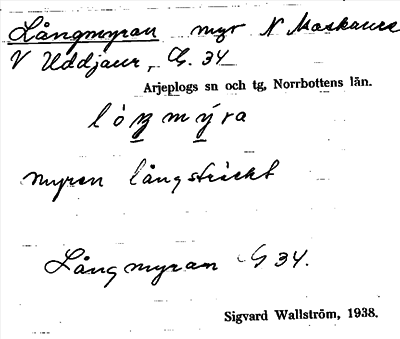 Långmyran myr N Maskaure
V Uddjaur, G. 34
Arjeplogs sn och tg, Norrbottens län.
lòŋmýra
myren långsträckt
Långmyran G 34.
Sigvard Wallström, 1938.